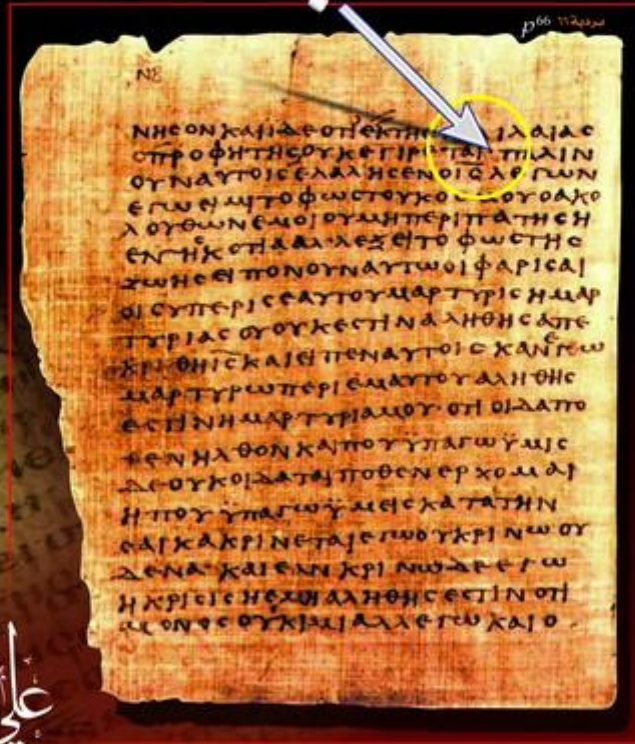 مردية ١١ p⁶⁶
ΝΕ
ΝΗϹΟΝΚΑΙΪΔΕΟΤΙΕΚΤΗϹ ΙΛΑΙΑϹ
ΟΠΡΟΦΗΤΗϹΟΥΚΕΓΙΡΕΤΑΙ ΠΑΛΙΝ
ΟΥΝΑΥΤΟΙϹΕΛΑΛΗϹΕΝΟΙϹΛΕΓΩΝ
ΕΓΩΕΙΜΙΤΟΦΩϹΤΟΥΚΟϹΜΟΥΟΑΚΟ
ΛΟΥΘΩΝΕΜΟΙΟΥΜΗΠΕΡΙΠΑΤΗϹΗ
ΕΝΤΗϹΚΟΤΙΑΑΛΛΕΞΕΙΤΟΦΩϹΤΗϹ
ΖΩΗϹΕΙΠΟΝΟΥΝΑΥΤΩΟΙΦΑΡΙϹΑΙ
ΟΙϹΥΠΕΡΙϹΕΑΥΤΟΥΜΑΡΤΥΡΙϹΗΜΑΡ
ΤΥΡΙΑϹΟΥΟΥΚΕϹΤΙΝΑΛΗΘΗϹΑΠΕ
ΚΡΙΘΗΙ̅Ϲ̅ΚΑΙΕΙΠΕΝΑΥΤΟΙϹΚΑΝΕΓΩ
ΜΑΡΤΥΡΩΠΕΡΙΕΜΑΥΤΟΥΑΛΗΘΗϹ
ΕϹΤΙΝΗΜΑΡΤΥΡΙΑΜΟΥ·ΟΤΙΟΙΔΑΠΟ
ΘΕΝΗΛΘΟΝΚΑΙΠΟΥΫΠΑΓΩΫΜΙϹ
ΔΕΟΥΚΟΙΔΑΤΑΙΠΟΘΕΝΕΡΧΟΜΑΙ
ΗΠΟΥΫΠΑΓΩΫΜΕΙϹΚΑΤΑΤΗΝ
ϹΑΡΚΑΚΡΙΝΕΤΑΙΕΓΩΟΥΚΡΙΝΩΟΥ
ΔΕΝΑ·ΚΑΙΕΑΝΚΡΙΝΩΔΕΕΓΩ
ΗΚΡΙϹΙϹΗΕΜΗΑΛΗΘΗϹΕϹΤΙΝΟΤΙ
ΜΟΝΟϹΟΥΚΙΜΙΑΛΛΕΓΩΚΑΙΟ
علي